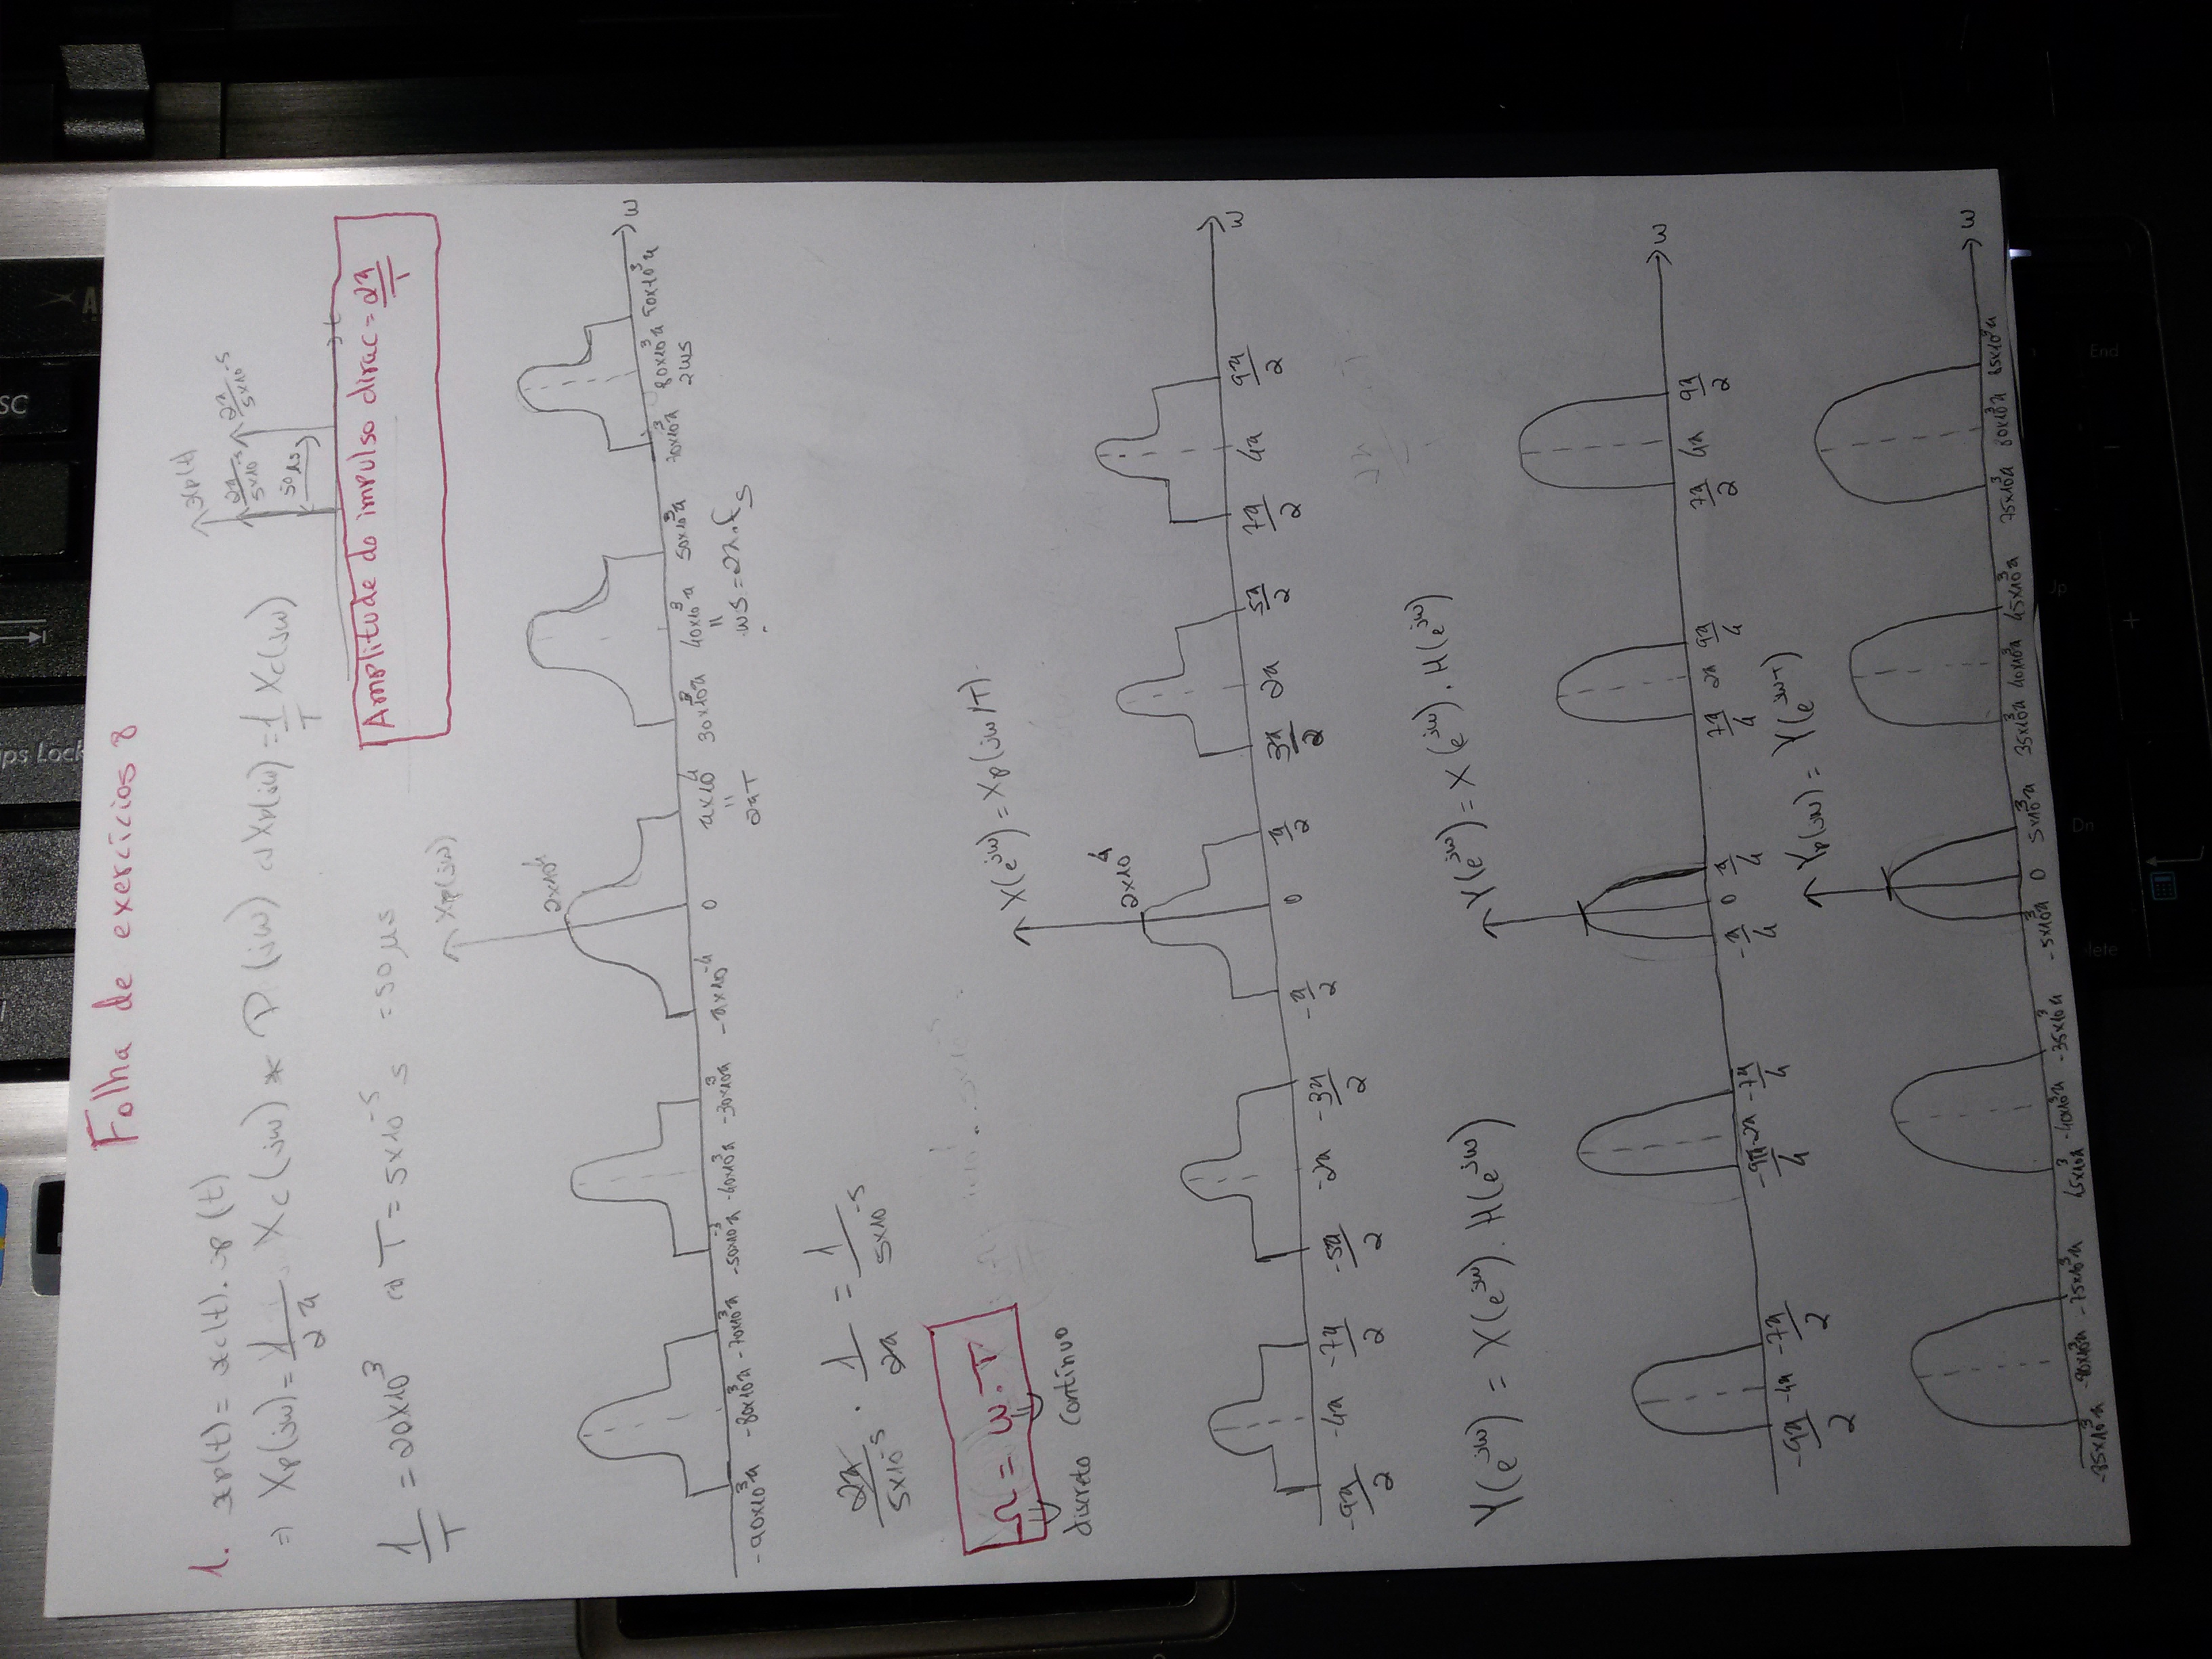 Folha de exercícios 8
1. xp(t) = xc(t) . p(t)
⇒ Xp(jω) = 1/2π Xc(jω) * P(jω) ⇔ Xp(jω) = 1/T Xc(jω)
xp(t)
2π/5×10^-5 2π/5×10^-5
50 μs
t
Amplitude do impulso dirac = 2π/T
1/T = 20×10^3 ⇔ T = 5×10^-5 s = 50 μs
Xp(jω)
2×10^4
ω
-90×10^3π -80×10^3π -70×10^3π -50×10^-3π -40×10^3π -30×10^3π -π×10^-4 0 π×10^4 30×10^3π 40×10^3π 50×10^3π 70×10^3π 80×10^3π 90×10^3π
= 2πT = ωs = 2π.fs 2ωs
2π/5×10^-5 . 1/2π = 1/5×10^-5
Ω = ω.T
discreto contínuo
X(e^jω) = Xp(jω/T)
2×10^4
ω
-9π/2 -4π -7π/2 -5π/2 -2π -3π/2 -π/2 0 π/2 3π/2 2π 5π/2 7π/2 4π 9π/2
Y(e^jω) = X(e^jω) . H(e^jω)
Y(e^jω) = X(e^jω) . H(e^jω)
ω
-9π/2 -4π -7π/2 -9π/4 -2π -7π/4 -π/4 0 π/4 7π/4 2π 9π/4 7π/2 4π 9π/2
Yp(jω) = Y(e^jωT)
ω
-85×10^3π -80×10^3π -75×10^3π 45×10^3π -40×10^3π -35×10^3π -5×10^3π 0 5×10^3π 35×10^3π 40×10^3π 45×10^3π 75×10^3π 80×10^3π 85×10^3π
ps Lock
SC
A
elete
Dn
Jp
+
-
End